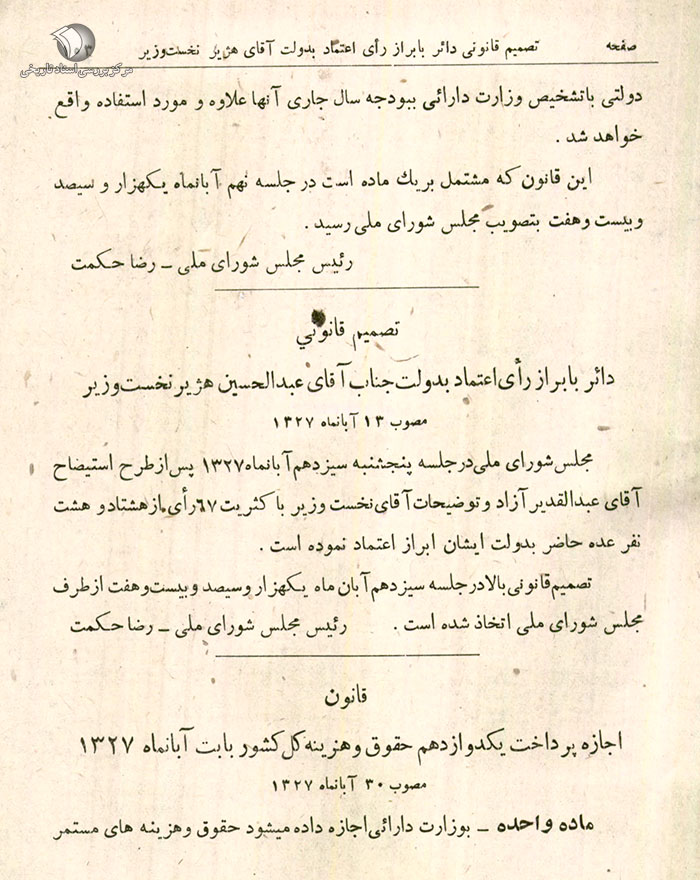 صفحه تصمیم قانونی دائر بابراز رأی اعتماد بدولت آقای هژیر نخست‌وزیر
مرکز بررسی اسناد تاریخی
دولتی باتشخیص وزارت دارائی ببودجه سال جاری آنها علاوه و مورد استفاده واقع
خواهد شد .
این قانون که مشتمل بریك ماده است در جلسه نهم آبانماه یکهزار و سیصد
وبیست وهفت بتصویب مجلس شورای ملی رسید .
رئیس مجلس شورای ملی ـ رضا حکمت
تصمیم قانونی
دائر بابراز رأی اعتماد بدولت جناب آقای عبدالحسین هژیر نخست‌وزیر
مصوب ۱۳ آبانماه ۱۳۲۷
مجلس شورای ملی در جلسه پنجشنبه سیزدهم آبانماه ۱۳۲۷ پس از طرح استیضاح
آقای عبدالقدیر آزاد و توضیحات آقای نخست وزیر با کثریت ۶۷ رأی از هشتاد و هشت
نفر عده حاضر بدولت ایشان ابراز اعتماد نموده است .
تصمیم قانونی بالا در جلسه سیزدهم آبان ماه یکهزار وسیصد وبیست وهفت از طرف
مجلس شورای ملی اتخاذ شده است . رئیس مجلس شورای ملی ـ رضا حکمت
قانون
اجازه پرداخت یکدوازدهم حقوق وهزینه کل کشور بابت آبانماه ۱۳۲۷
مصوب ۳۰ آبانماه ۱۳۲۷
ماده واحده ـ بوزارت دارائی اجازه داده میشود حقوق وهزینه های مستمر